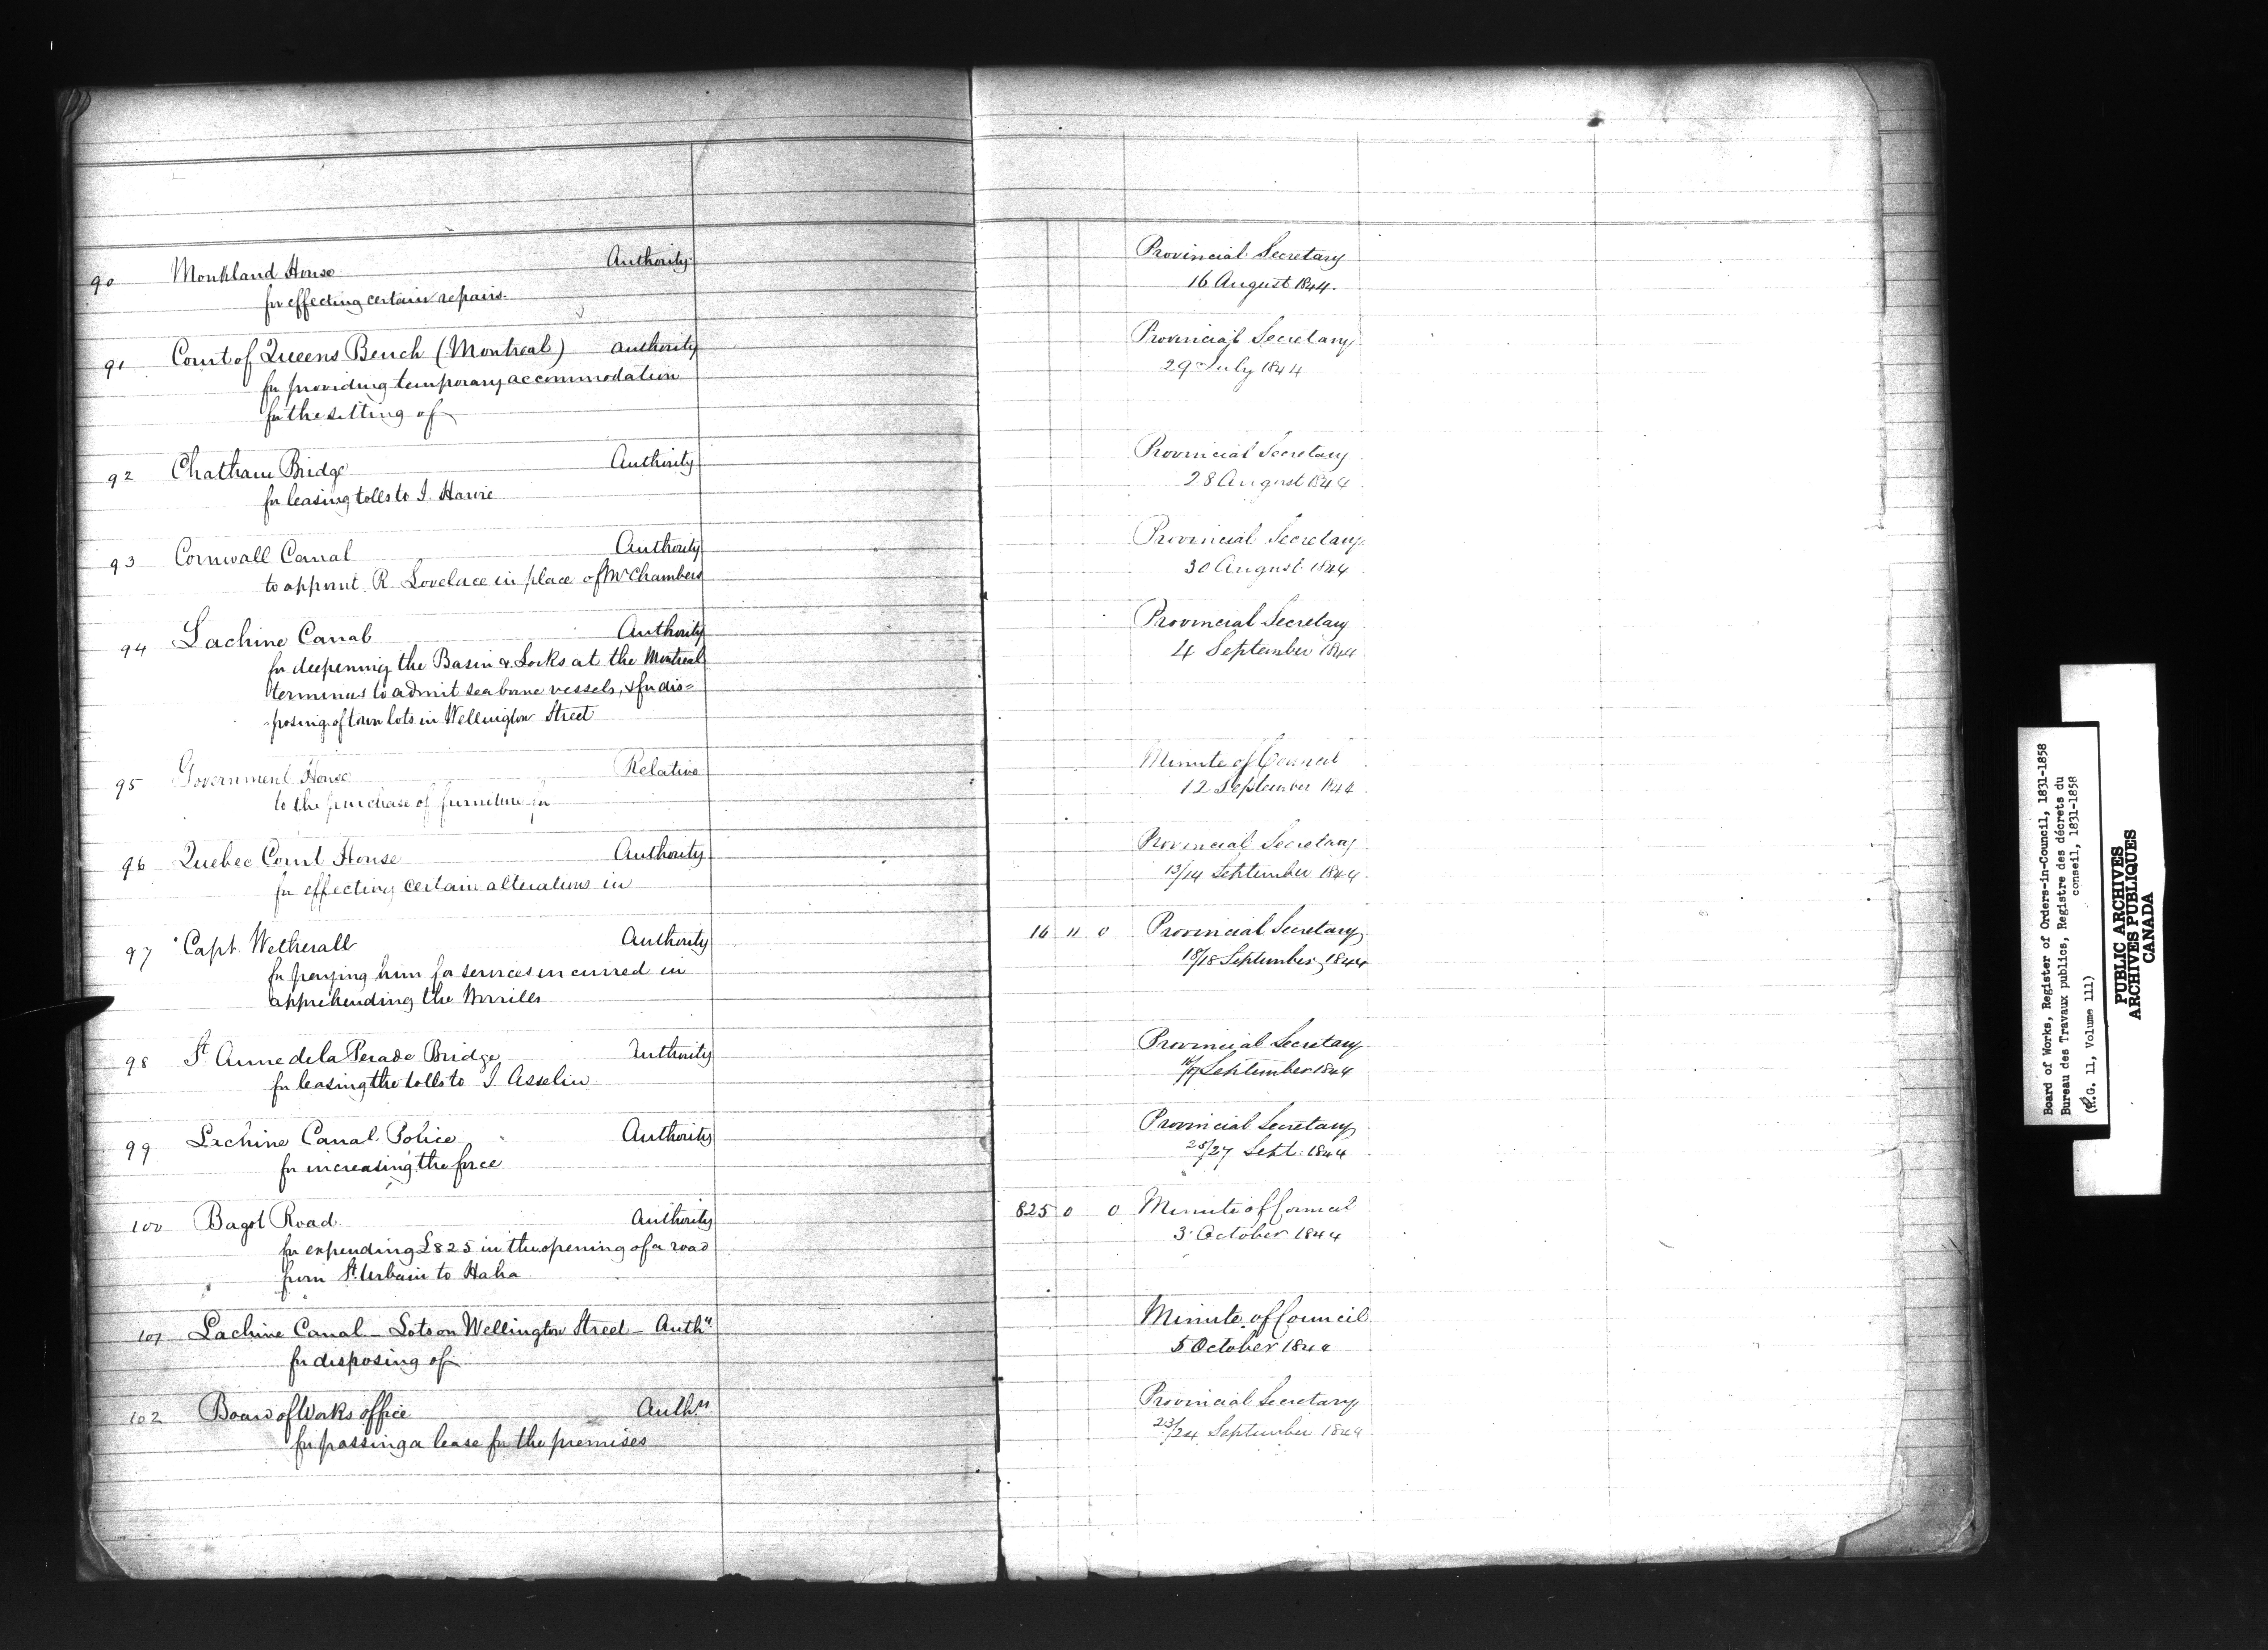 90 Monkland House Authority
for effecting certain repairs.
Provincial Secretary
16 August 1844.
91 Court of Queens Bench (Montreal) authority
for providing temporary accommodation
for the sitting of
Provincial Secretary
29 July 1844
92 Chatham Bridge Authority
for leasing tolls to J. Harvie
Provincial Secretary
28 August 1844
93 Cornwall Canal Authority
to appoint R. Lovelace in place of Mr Chambers
Provincial Secretary
30 August 1844
94 Lachine Canal Authority
for deepening the Basin & Locks at the Montreal
terminus to admit sea borne vessels, & for dis=
-posing of town lots in Wellington Street
Provincial Secretary
4 September 1844
95 Government House Relative
to the purchase of furniture for
Minute of Council
12 September 1844
96 Quebec Court House Authority
for effecting certain alterations in
Provincial Secretary
13/14 September 1844
97 Capt. Wetherall Authority
for paying him for services incurred in
apprehending the
16 11 0 Provincial Secretary
18/18 September 1844
98 St. Anne de la Perade Bridge Authority
for leasing the tolls to J. Asselin
Provincial Secretary
September 1844
99 Lachine Canal Police Authority
for increasing the force
Provincial Secretary
25/27 Sept. 1844
100 Bagot Road Authority
for expending £825 in the opening of a road
from St. Urbain to Haha
825 0 0 Minute of Council
3 October 1844
101 Lachine Canal - Lots on Wellington Street - Authy
for disposing of
Minute of Council
5 October 1844
102 Board of Works office Authy
for passing a lease for the premises
Provincial Secretary
23/24 September 1844
Board of Works, Register of Orders-in-Council, 1831-1858
Bureau des Travaux publics, Registre des décrets du
conseil, 1831-1858
(R.G. 11, Volume 111)
PUBLIC ARCHIVES
ARCHIVES PUBLIQUES
CANADA